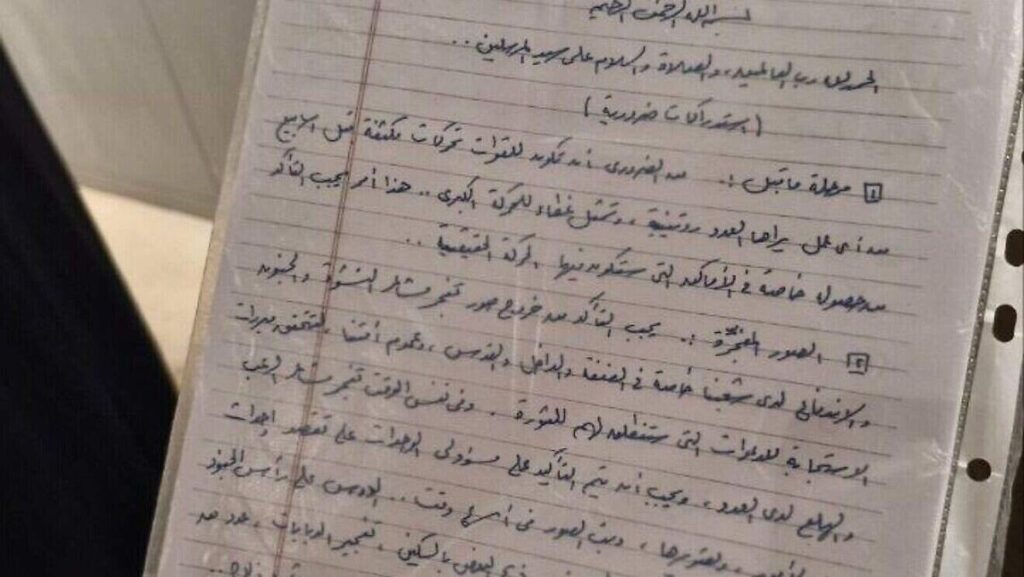 بسم الله الرحمن الرحيم
الحمد لله رب العالمين، والصلاة والسلام على سيد المرسلين..
(استدراكات ضرورية)
1 مرحلة ما قبل :. من الضروري أن تكون للقوات تحركات مكثفة قبل
من أي عمل يراها العدو روتينية، وتشكل غطاء للحركة الكبرى.. هذا أمر يجب التأكد
من حصوله خاصة في الأماكن التي ستكون فيها الحركة الحقيقية..
2 الصور المفجرة :. يجب التأكد من خروج صور تفجر مشاعر النشوة والجنون
والاندفاع لدى شعبنا خاصة في الضفة والداخل والقدس، وعموم أمتنا، لتتحقق
الاستجابة للدعوات التي ستنطلق لهم للثورة.. وفي نفس الوقت تفجر مشاعر الرعب
والهلع لدى العدو، ويجب أن يتم التأكيد على مسؤولي الوحدات على تقصد إحداث
وتصويرها، وبث الصور في أسرع وقت.. الدوس على رأس الجنود
البعض بالسكين، تفجير الدبابات، عدد من